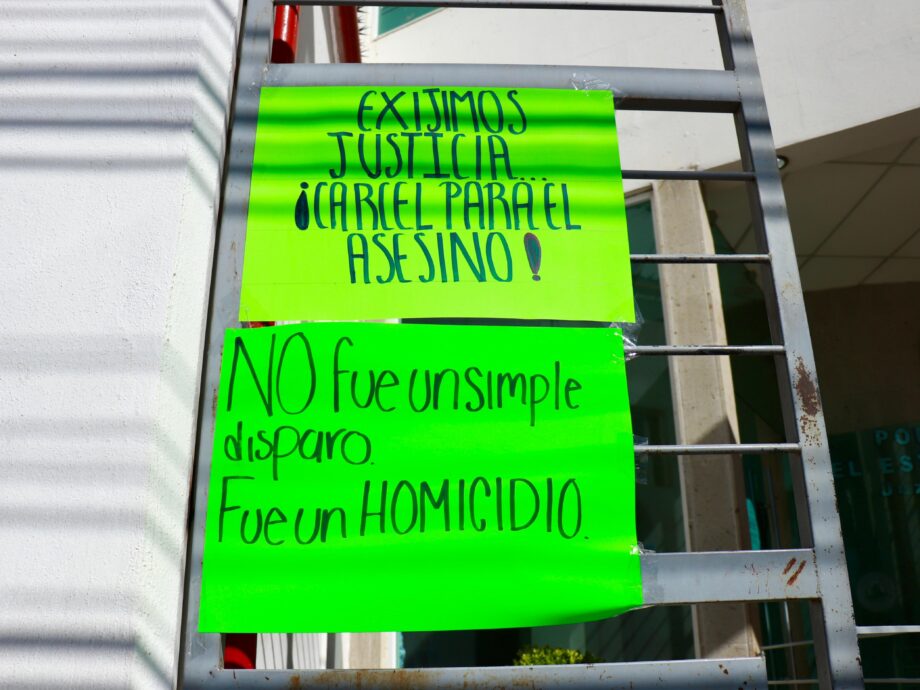 EXIJIMOS
JUSTICIA...
¡CARCEL PARA EL
ASESINO!
NO fue un simple
disparo.
Fue un HOMICIDIO.